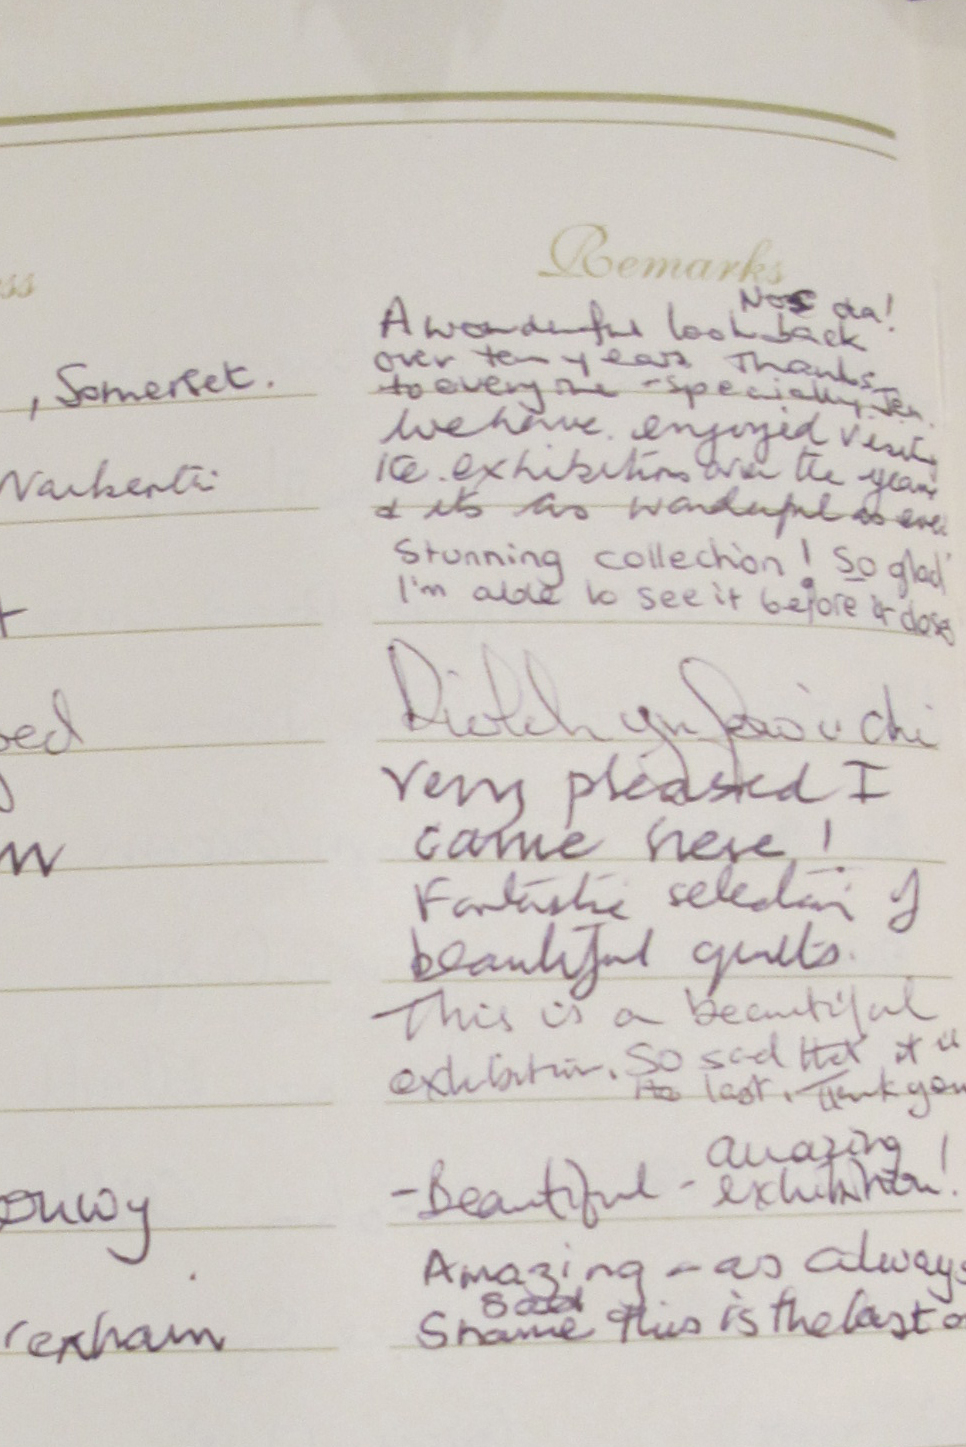 ss
Remarks
Nos da!
A wonderful look back
, Somerset.
over ten years Thanks
to everyone - specially Jen.
We have enjoyed visiting
exhibitions over the years
& its as wonderful as ever
Stunning collection! So glad
I'm able to see it before it closes
Diolch yn fawr i chi
Very pleased I
came here!
Fantastic selection of
beautiful quilts.
This is a beautiful
exhibition. So sad that it is
the last. Thank you
amazing!
onwy
- Beautiful - exhibition!
Amazing - as always
Sad
rexham
Shame this is the last o